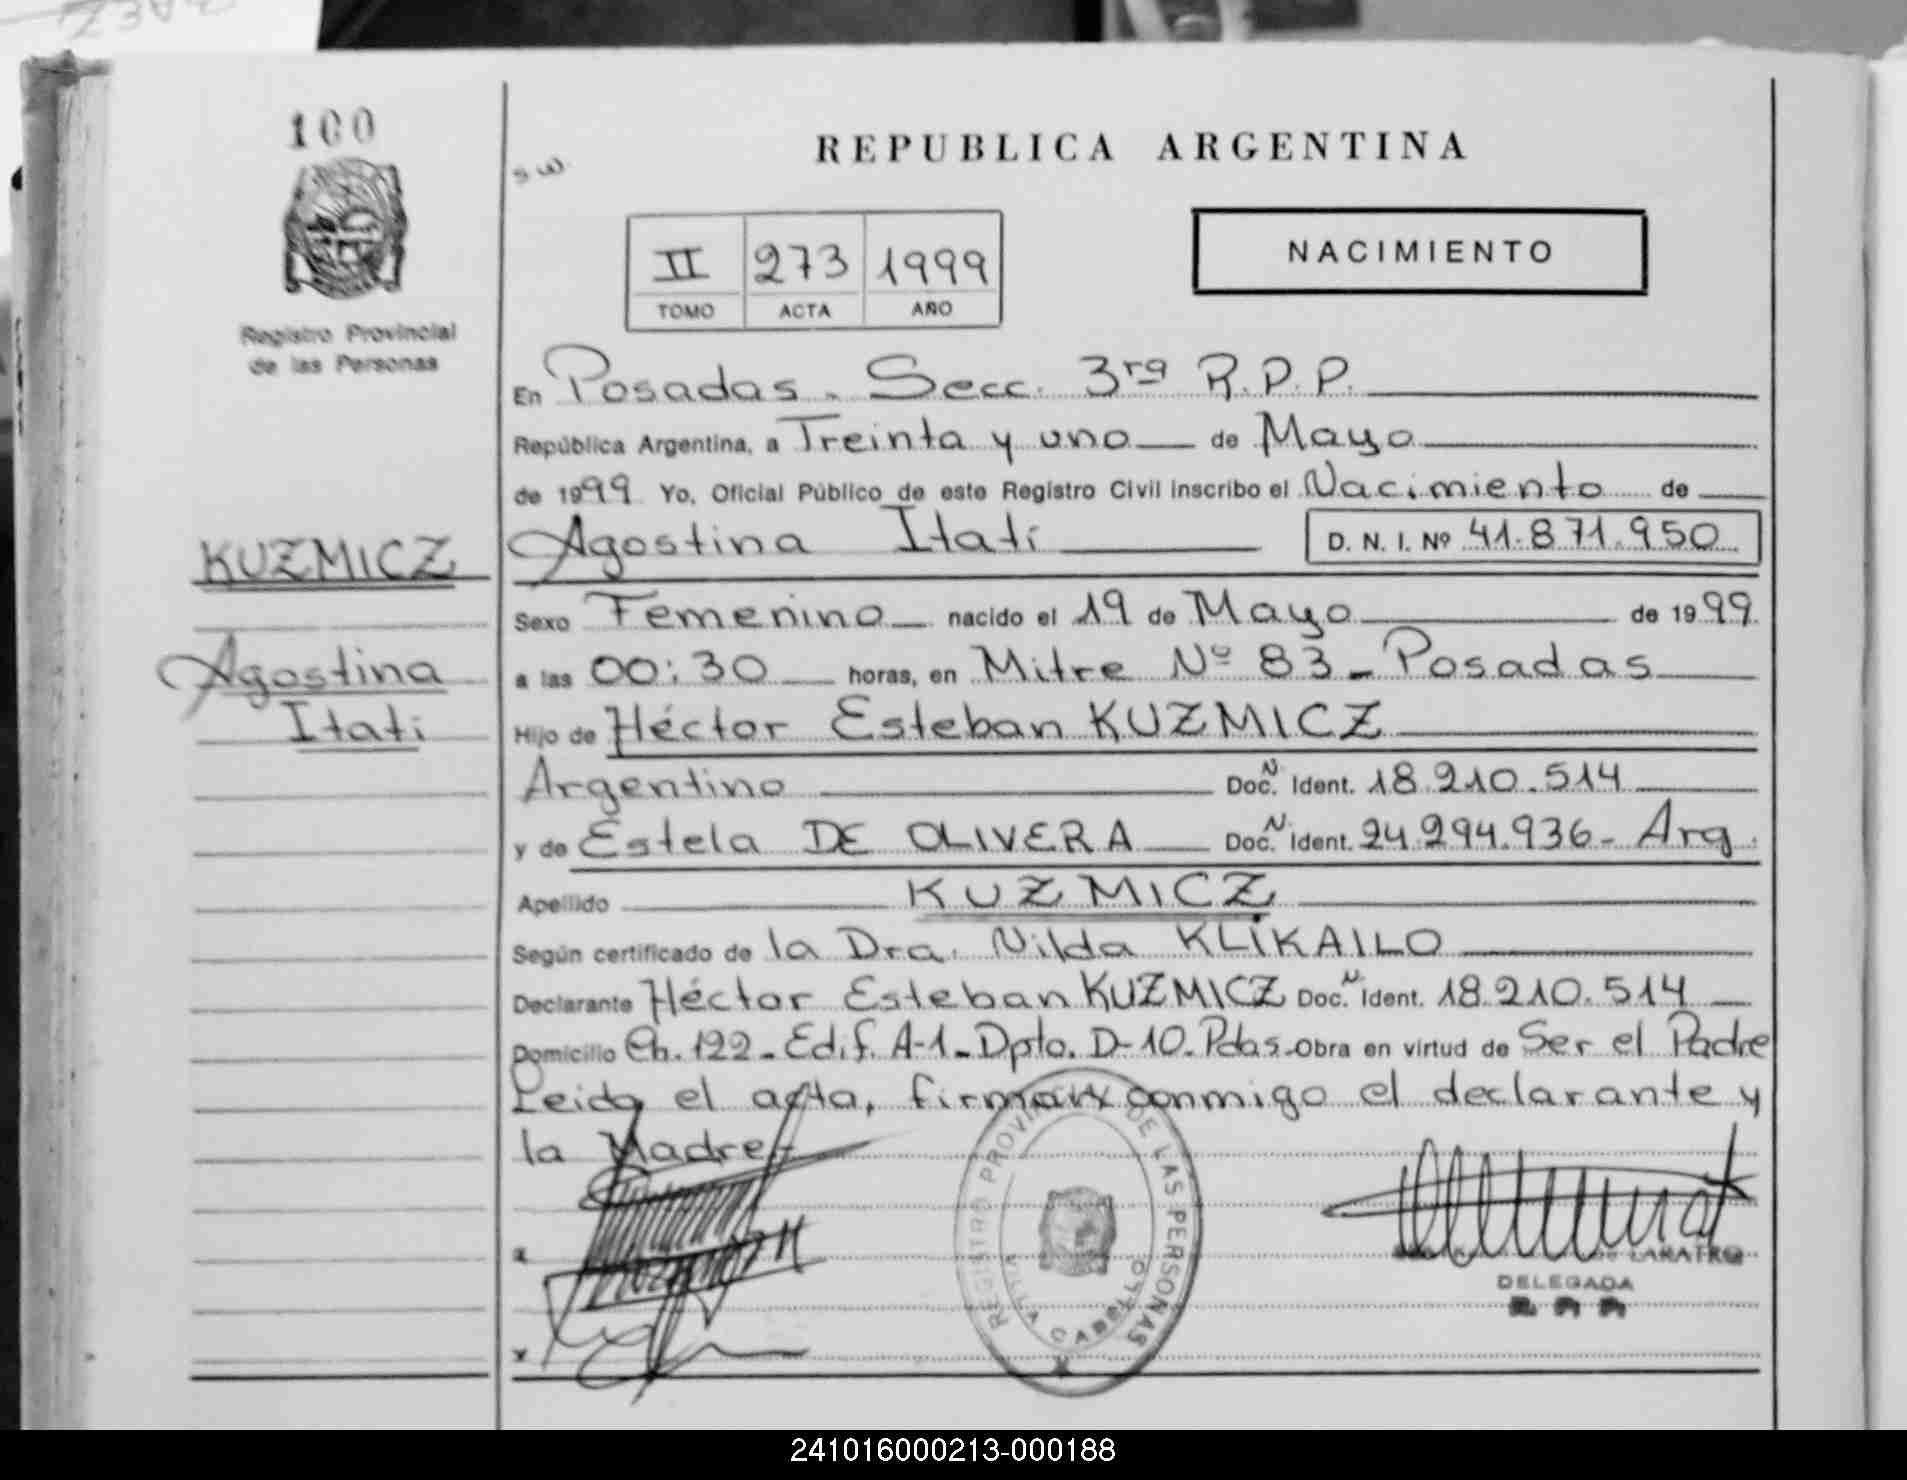 100
Registro Provincial
de las Personas
s w.
REPUBLICA ARGENTINA
II 273 1999
TOMO ACTA AÑO
NACIMIENTO
En Posadas. Secc. 3ra R.P.P.
República Argentina, a Treinta y uno de Mayo
de 1999 Yo, Oficial Público de este Registro Civil inscribo el Nacimiento de
KUZMICZ
Agostina Itatí
D. N. I. Nº 41.871.950
Sexo Femenino nacido el 19 de Mayo de 1999
Agostina
a las 00:30 horas, en Mitre Nº 83 - Posadas
Itatí
Hijo de Héctor Esteban KUZMICZ
Argentino Doc. N Ident. 18.210.514
y de Estela DE OLIVERA Doc. N Ident. 24.294.936- Arg.
Apellido KUZMICZ
Según certificado de la Dra. Nilda KLIKAILO
Declarante Héctor Esteban KUZMICZ Doc. N Ident. 18.210.514
Domicilio Ch. 122 - Edif. A-1 - Dpto. D-10. Pdas. Obra en virtud de Ser el Padre
Leida el acta, firman conmigo el declarante y
la Madre.-
REGISTRO PROVINCIAL DE LAS PERSONAS
VILLA CABELLO
DE LARATRO
DELEGADA
x
241016000213-000188